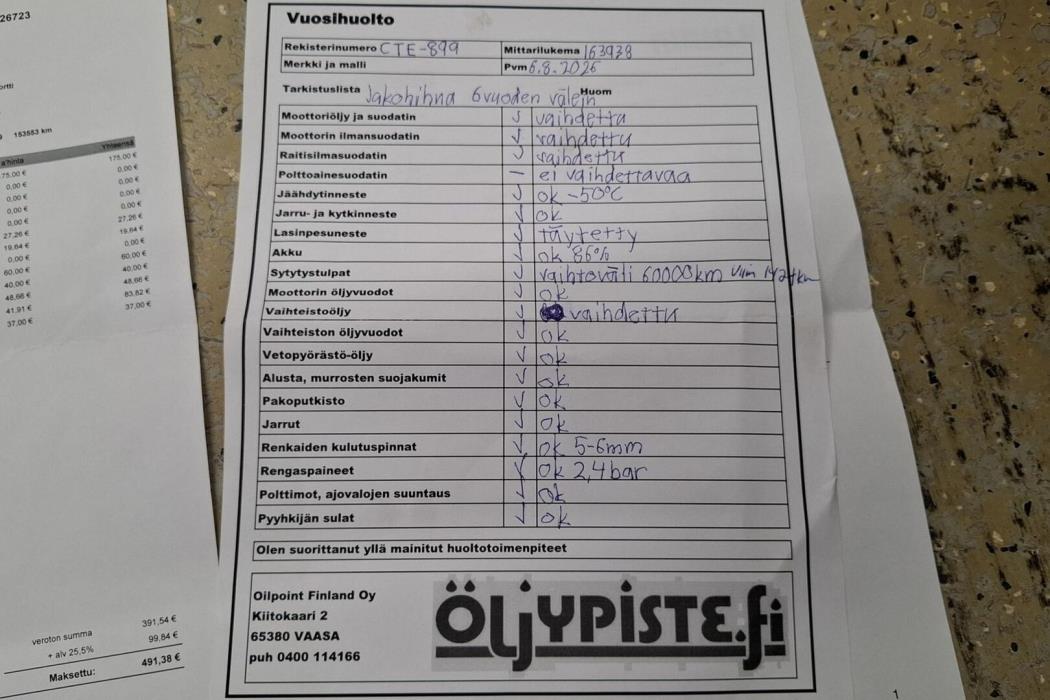 26723
153553 km
a'hinta Yhteensä
75,00 € 175,00 €
0,00 € 0,00 €
0,00 € 0,00 €
0,00 € 0,00 €
0,00 € 0,00 €
27,26 € 27,26 €
19,64 € 19,64 €
0,00 € 0,00 €
60,00 € 60,00 €
40,00 € 40,00 €
48,66 € 48,66 €
41,91 € 83,82 €
37,00 € 37,00 €
veroton summa 391,54 €
+ alv 25,5% 99,84 €
Maksettu: 491,38 €
Vuosihuolto
Rekisterinumero CTE-899 Mittarilukema 163938
Merkki ja malli Pvm 6.8.2025
Tarkistuslista Jakohihna 6 vuoden välein Huom
Moottoriöljy ja suodatin vaihdettu
Moottorin ilmansuodatin vaihdettu
Raitisilmasuodatin vaihdettu
Polttoainesuodatin – ei vaihdettavaa
Jäähdytinneste ok -50°C
Jarru- ja kytkinneste ok
Lasinpesuneste täytetty
Akku ok 86%
Sytytystulpat vaihtoväli 60000km
Moottorin öljyvuodot ok
Vaihteistoöljy vaihdettu
Vaihteiston öljyvuodot ok
Vetopyörästö-öljy ok
Alusta, murrosten suojakumit ok
Pakoputkisto ok
Jarrut ok
Renkaiden kulutuspinnat ok 5-6mm
Rengaspaineet ok 2,4 bar
Polttimot, ajovalojen suuntaus ok
Pyyhkijän sulat ok
Olen suorittanut yllä mainitut huoltotoimenpiteet
Oilpoint Finland Oy
Kiitokaari 2
65380 VAASA
puh 0400 114166
ÖLJYPISTE.fi
1